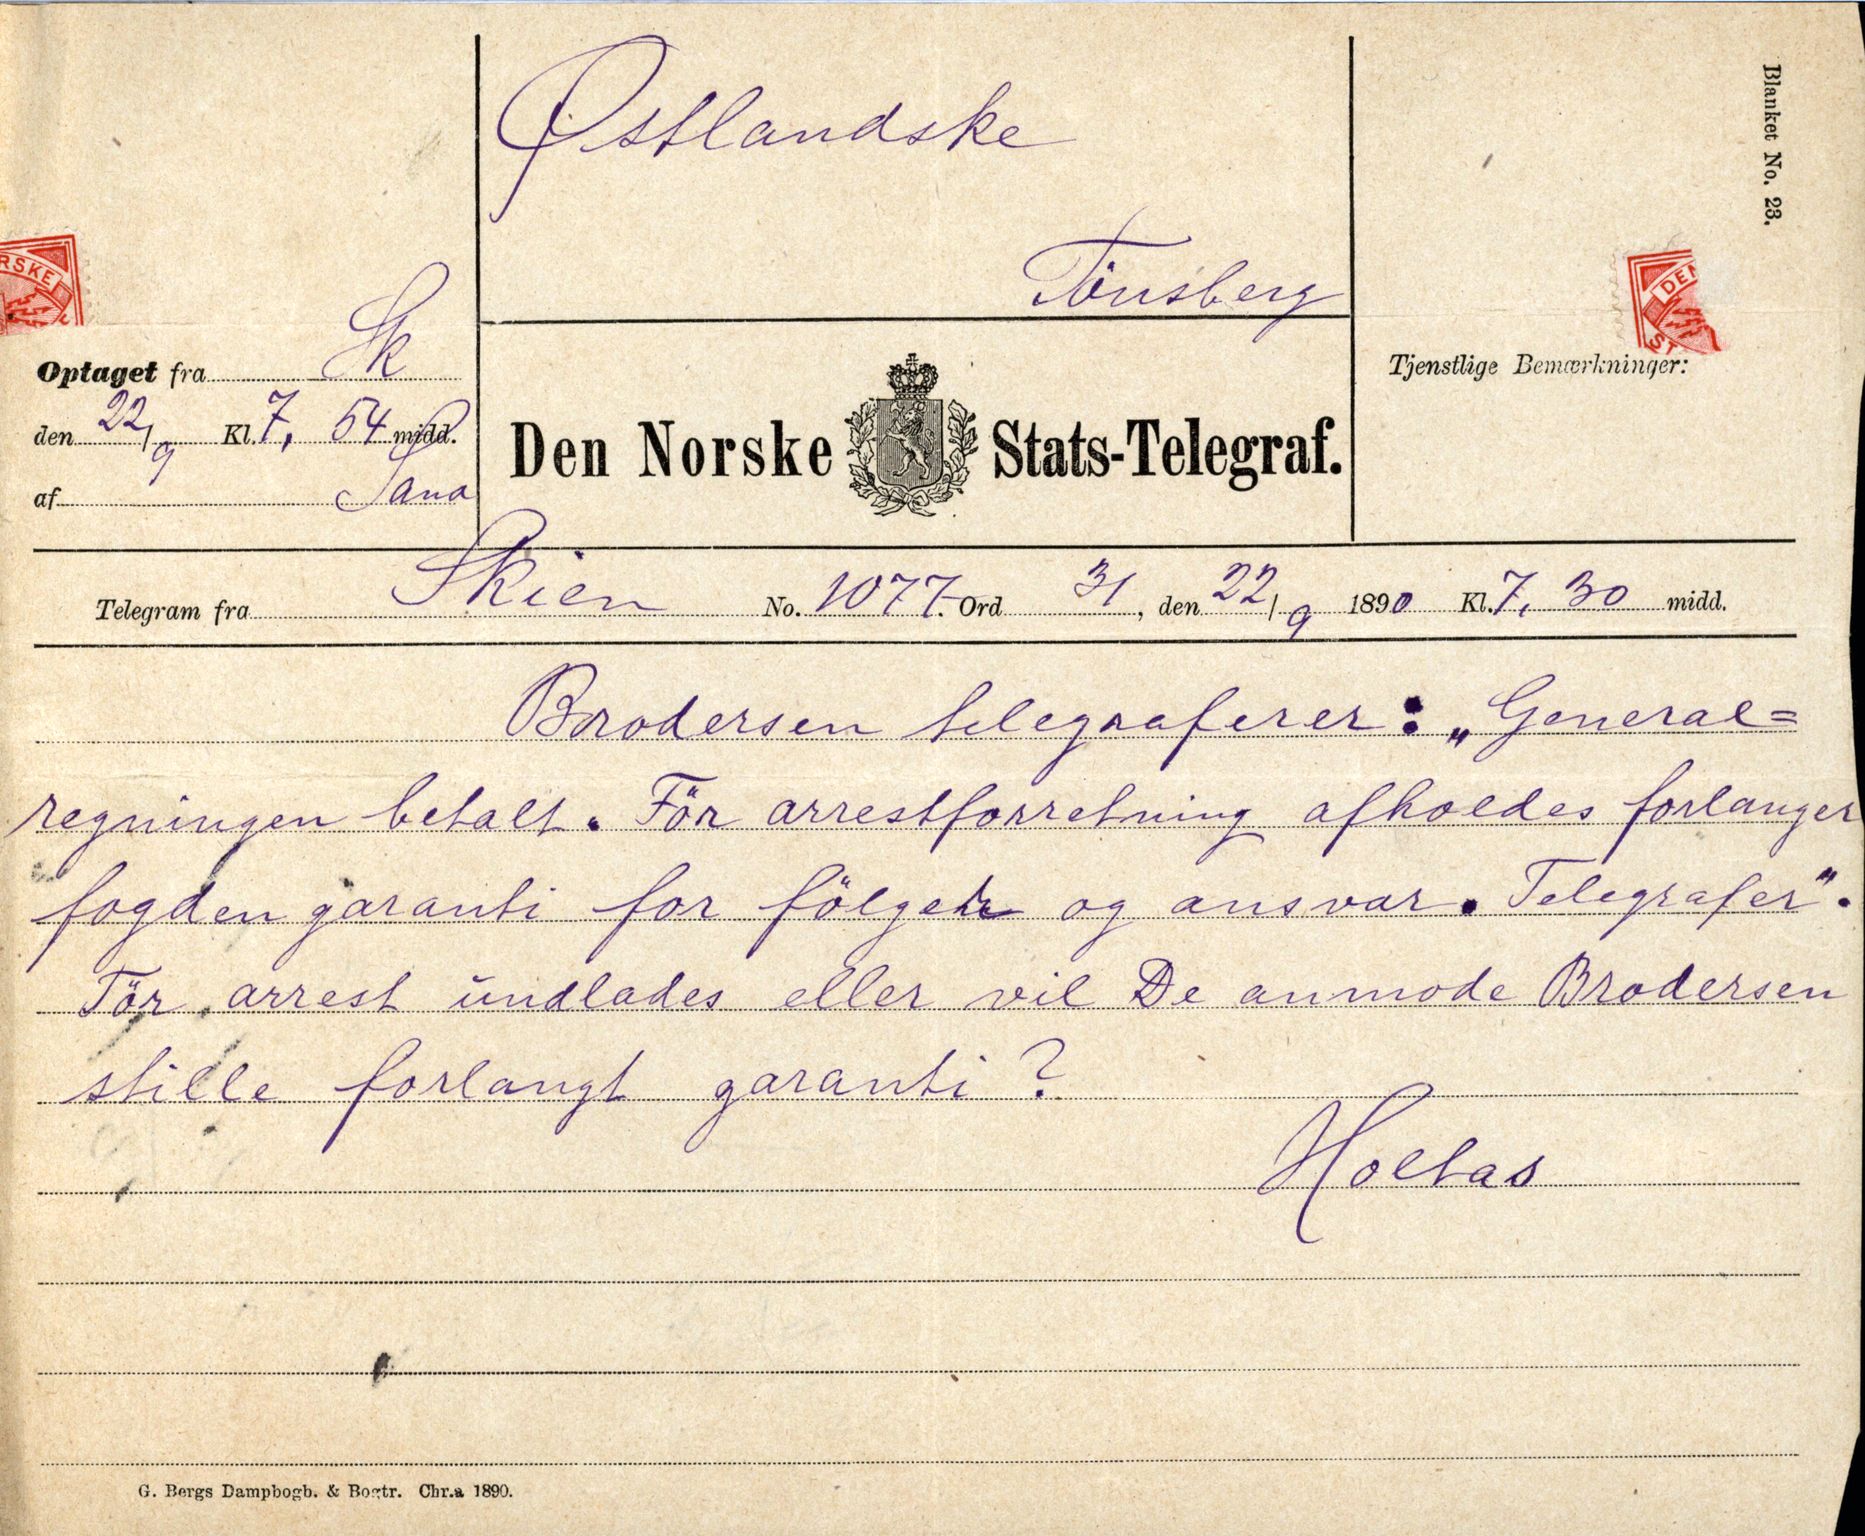 Blanket No. 23.
Østlandske
Tönsberg
RSKE
DEN
ST
Optaget fra Sk
den 22/9 Kl. 7, 54 midd.
af
Den Norske Stats-Telegraf.
Tjenstlige Bemærkninger:
Telegram fra Skien No. 1077. Ord 31, den 22/9 1890 Kl. 7, 30 midd.
Brodersen telegraferer: „General=
regningen betalt. För arrestforretning afholdes forlanger
fogden garanti for fölger og ansvar. Telegrafer".
Tör arrest undlades eller vil De anmode Brodersen
stille forlangt garanti?
Holtas
G. Bergs Dampbogb. & Bogtr. Chr.a 1890.